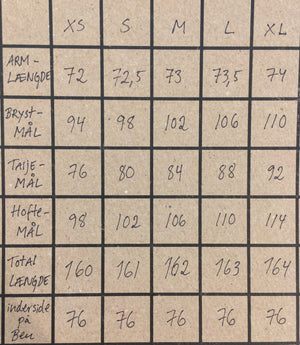 XS S M L XL
ARM-
LÆNGDE 72 72,5 73 73,5 74
BRYST-
MÅL 94 98 102 106 110
TALJE-
MÅL 76 80 84 88 92
Hofte-
MÅL 98 102 106 110 114
Total
LÆNGDE 160 161 162 163 164
inderside
på
Ben 76 76 76 76 76